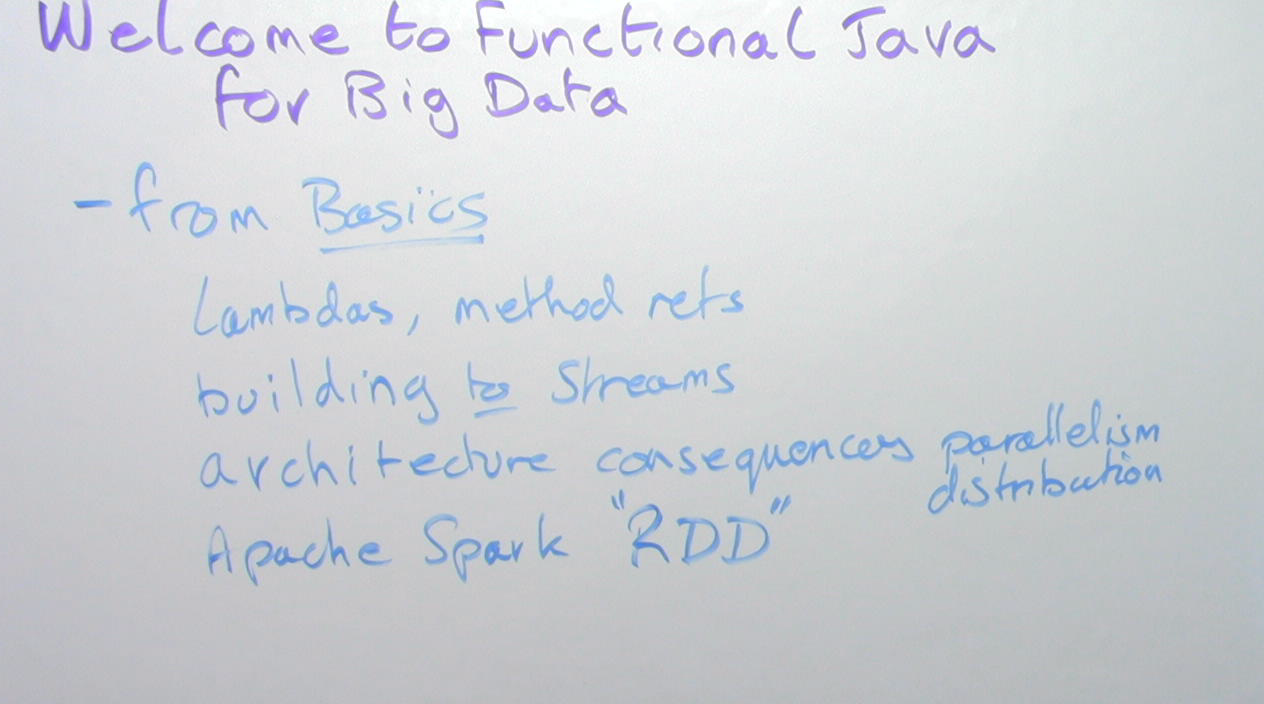 Welcome to Functional Java
for Big Data
- from Basics
Lambdas, method refs
building to Streams
architecture consequences parallelism
distribution
Apache Spark "RDD"